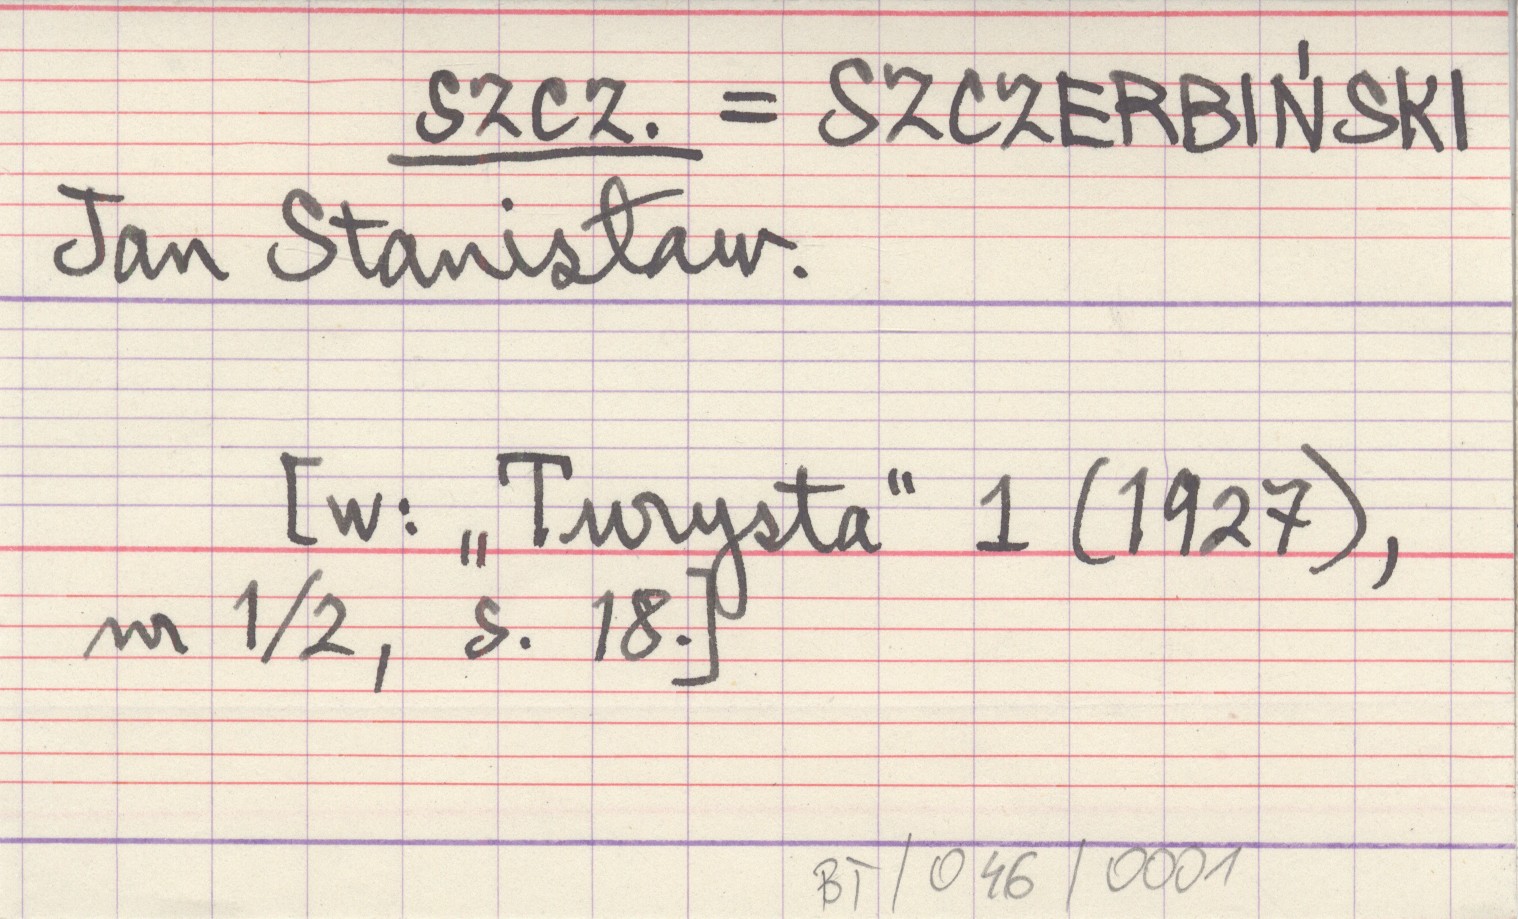 SZCZ. = SZCZERBIŃSKI
Jan Stanisław.
[w: „Turysta" 1 (1927),
nr 1/2, s. 18.]
BT/046/0001